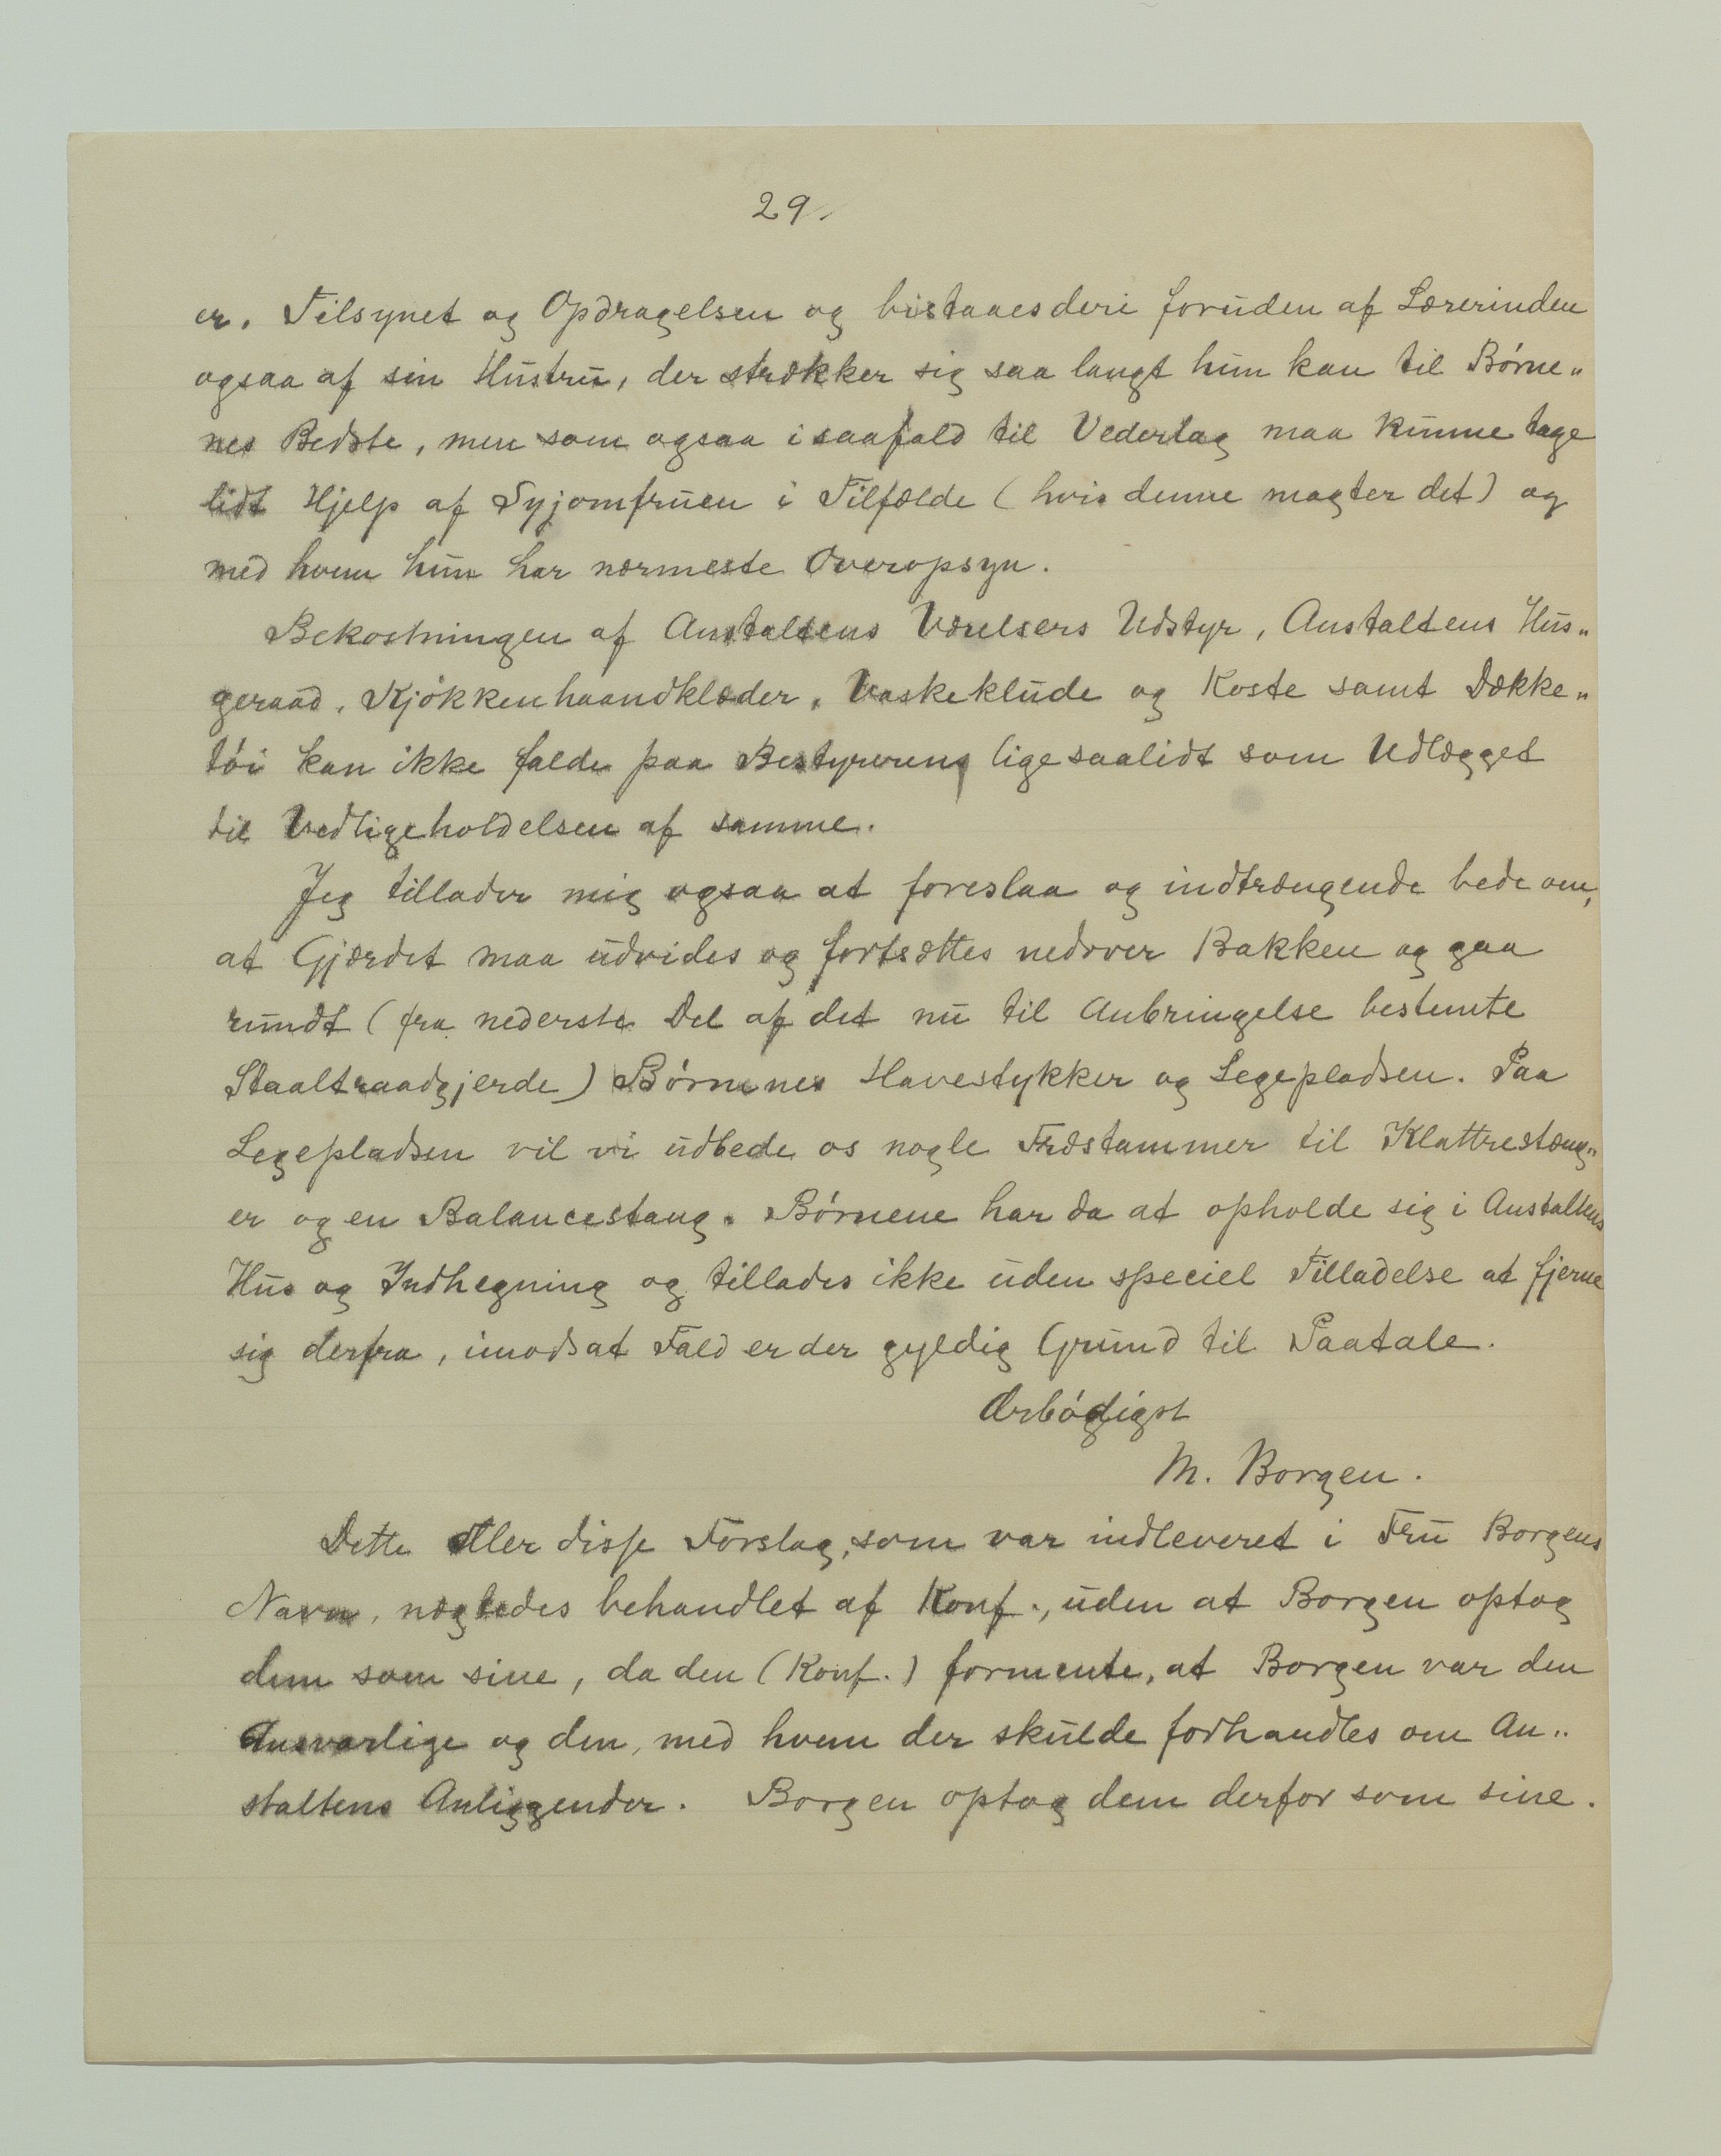 29.
er. Tilsynet og Opdragelsen og bistaaes deri foruden af Lærerinden
ogsaa af sin Hustru, der strækker sig saa langt hun kan til Børne„
nes Bedste, men som ogsaa i saafald til Vederlag maa kunne tage
lidt Hjelp af Syjomfruen i Tilfælde (hvis denne magter det) og
med hvem hun har nærmeste Overopsyn.
Bekostningen af Anstaltens Værelsers Udstyr, Anstaltens Hus„
geraad, Kjøkkenhaandklæder, Vaskeklude og Koste samt Dække„
tøi kan ikke falde paa Bestyreren, ligesaalidt som Udlægget
til Vedligeholdelsen af samme.
Jeg tillader mig ogsaa at foreslaa og indtrængende bede om,
at Gjærdet maa udvides og fortsættes nedover Bakken og gaa
rundt (fra nederste Del af det nu til Anbringelse bestemte
Staaltraadgjerde) Børnenes Havestykker og Legepladsen. Paa
Legepladsen vil vi udbede os nogle Træstammer til Klattrestæng„
er og en Balancestang. Børnene har da at opholde sig i Anstaltens
Hus og Indhegning og tillades ikke uden speciel Tilladelse at fjerne
sig derfra, imodsat Fald er der gyldig Grund til Paatale.
Ærbødigst
M. Borgen.
Dette eller disse Forslag, som var indleveret i Fru Borgens
Navn, nægtedes behandlet af Konf., uden at Borgen optog
dem som sine, da den (Konf.) formente, at Borgen var den
Ansvarlige og den, med hvem der skulde forhandles om An„
staltens Anliggender. Borgen optog dem derfor som sine.